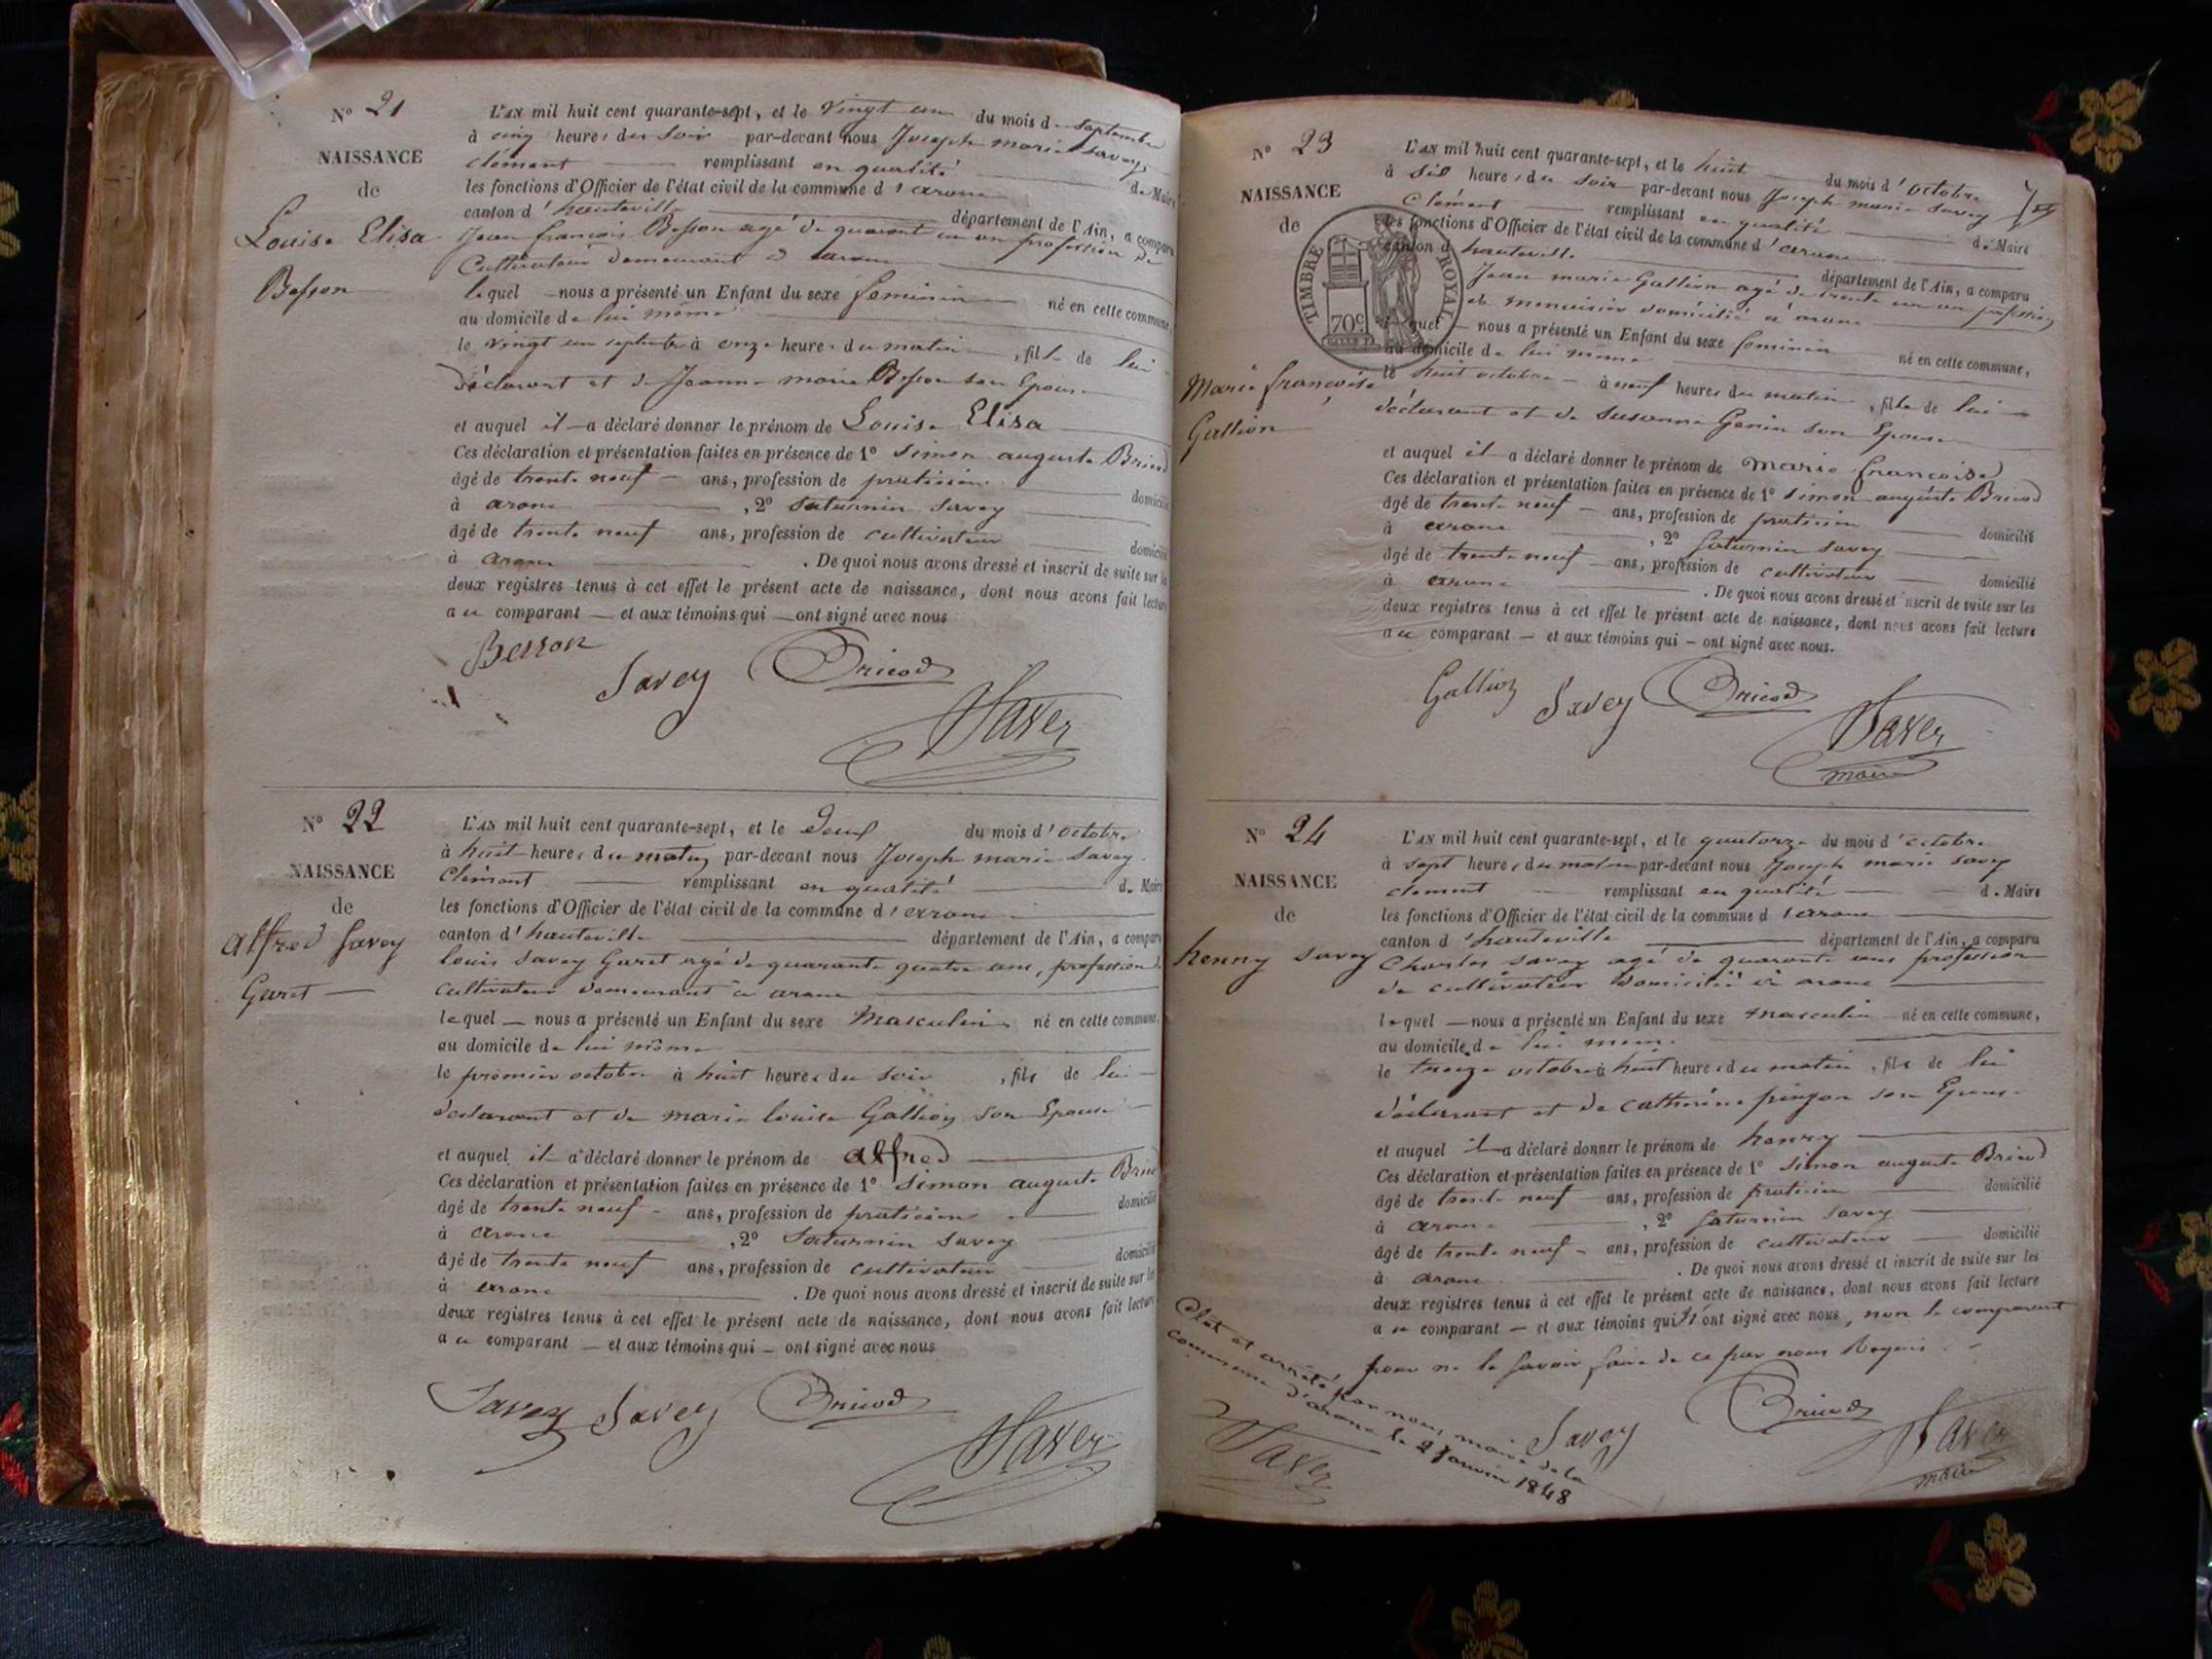 N° 21
NAISSANCE
de
Louise Elisa
Besson
L'AN mil huit cent quarante-sept, et le vingt un du mois de septembre
à cinq heures du soir par-devant nous Joseph marie Savey
clément remplissant en qualité de Maire
les fonctions d'Officier de l'état civil de la commune d'arane
canton d'hauteville département de l'Ain, a comparu
Jean françois Besson agé de quarante un an profession de
Cultivateur demeurant à arane
lequel nous a présenté un Enfant du sexe feminin né en cette commune,
au domicile de lui même
le vingt un septembre à onze heures du matin, fille de lui
déclarant et de Jeanne marie Besson son Epouse
et auquel il a déclaré donner le prénom de Louise Elisa
Ces déclaration et présentation faites en présence de 1° Simon auguste Bricod
âgé de trente neuf ans, profession de praticien domicilié
à arane, 2° Saturnin Savey
âgé de trente neuf ans, profession de cultivateur domicilié
à arane. De quoi nous avons dressé et inscrit de suite sur les
deux registres tenus à cet effet le présent acte de naissance, dont nous avons fait lecture
au comparant et aux témoins qui ont signé avec nous
Besson Savey Bricod
Savey
N° 22
NAISSANCE
de
alfred Savey
Guret
L'AN mil huit cent quarante-sept, et le deux du mois d'octobre
à huit heures du matin par-devant nous Joseph marie Savey
Clément remplissant en qualité de Maire
les fonctions d'Officier de l'état civil de la commune d'arane
canton d'hauteville département de l'Ain, a comparu
louis Savey Guret agé de quarante quatre ans, profession de
cultivateur demeurant à arane
lequel nous a présenté un Enfant du sexe Masculin né en cette commune,
au domicile de lui même
le premier octobre à huit heures du soir, fils de lui
déclarant et de marie louise Gallion son Epouse
et auquel il a déclaré donner le prénom de alfred
Ces déclaration et présentation faites en présence de 1° Simon auguste Bricod
âgé de trente neuf ans, profession de praticien domicilié
à arane, 2° Saturnin Savey
âgé de trente neuf ans, profession de cultivateur domicilié
à arane. De quoi nous avons dressé et inscrit de suite sur les
deux registres tenus à cet effet le présent acte de naissance, dont nous avons fait lecture
au comparant et aux témoins qui ont signé avec nous
Savey Savey Bricod
Savey
N° 23
NAISSANCE
de
TIMBRE ROYAL
70c
Marie françoise
Gallion
L'AN mil huit cent quarante-sept, et le huit du mois d'octobre
à six heures du soir par-devant nous Joseph marie Savey
Clément remplissant en qualité de Maire
les fonctions d'Officier de l'état civil de la commune d'arane
canton d'hauteville département de l'Ain, a comparu
Jean marie Gallion agé de trente un an profession
de menuisier domicilié à arane
lequel nous a présenté un Enfant du sexe feminin né en cette commune,
au domicile de lui même
le huit octobre à neuf heures du matin, fille de lui
déclarant et de Susanne Genin son Epouse
et auquel il a déclaré donner le prénom de marie françoise
Ces déclaration et présentation faites en présence de 1° Simon auguste Bricod
âgé de trente neuf ans, profession de praticien domicilié
à arane, 2° Saturnin Savey
âgé de trente neuf ans, profession de cultivateur domicilié
à arane. De quoi nous avons dressé et inscrit de suite sur les
deux registres tenus à cet effet le présent acte de naissance, dont nous avons fait lecture
au comparant et aux témoins qui ont signé avec nous.
Gallion Savey Bricod
Savey
maire
N° 24
NAISSANCE
de
henry Savey
L'AN mil huit cent quarante-sept, et le quatorze du mois d'octobre
à sept heures du matin par-devant nous Joseph marie Savey
clement remplissant en qualité de Maire
les fonctions d'Officier de l'état civil de la commune d'arane
canton d'hauteville département de l'Ain, a comparu
Charles Savey agé de quarante ans profession
de cultivateur domicilié à arane
lequel nous a présenté un Enfant du sexe masculin né en cette commune,
au domicile de lui meme
le treize octobre à huit heures du matin, fils de lui
déclarant et de catherine pinjon son Epouse
et auquel il a déclaré donner le prénom de henry
Ces déclaration et présentation faites en présence de 1° Simon auguste Bricod
âgé de trente neuf ans, profession de praticien domicilié
à arane, 2° Saturnin Savey
âgé de trente neuf ans, profession de cultivateur domicilié
à arane. De quoi nous avons dressé et inscrit de suite sur les
deux registres tenus à cet effet le présent acte de naissance, dont nous avons fait lecture
au comparant et aux témoins qui ont signé avec nous, non le comparant
pour ne le savoir faire de ce par nous Requis.
Savey Bricod
Savey
maire
Clos et arreté par nous maire de la
commune d'arane le 2 Janvier 1848
Savey